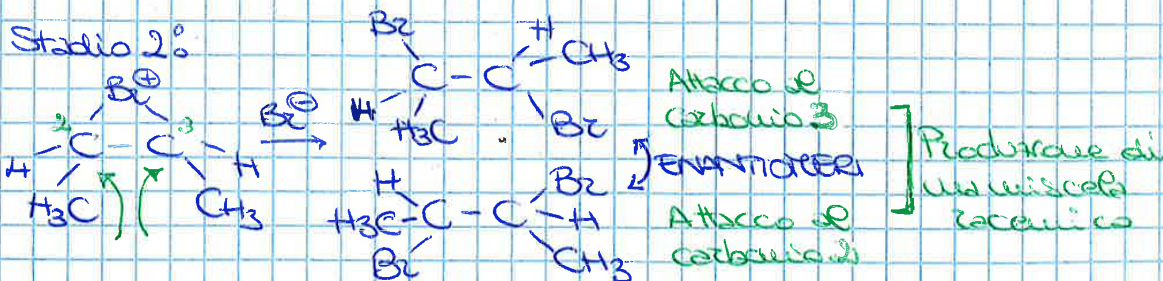 Stadio 2:
Br⊕
2 3
H C - C H
H₃C CH₃
Br⊖
Br H
C - C CH₃
H H₃C Br
H Br
H₃C - C - C - H
Br CH₃
Attacco al
carbonio 3
ENANTIOMERI
Attacco al
carbonio 2
Produzione di
una miscela
racemica